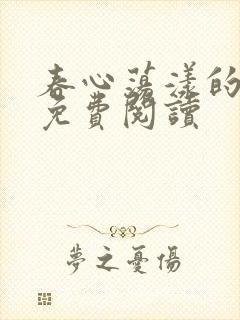 春心荡漾的
免費閱讀
夢之憂傷